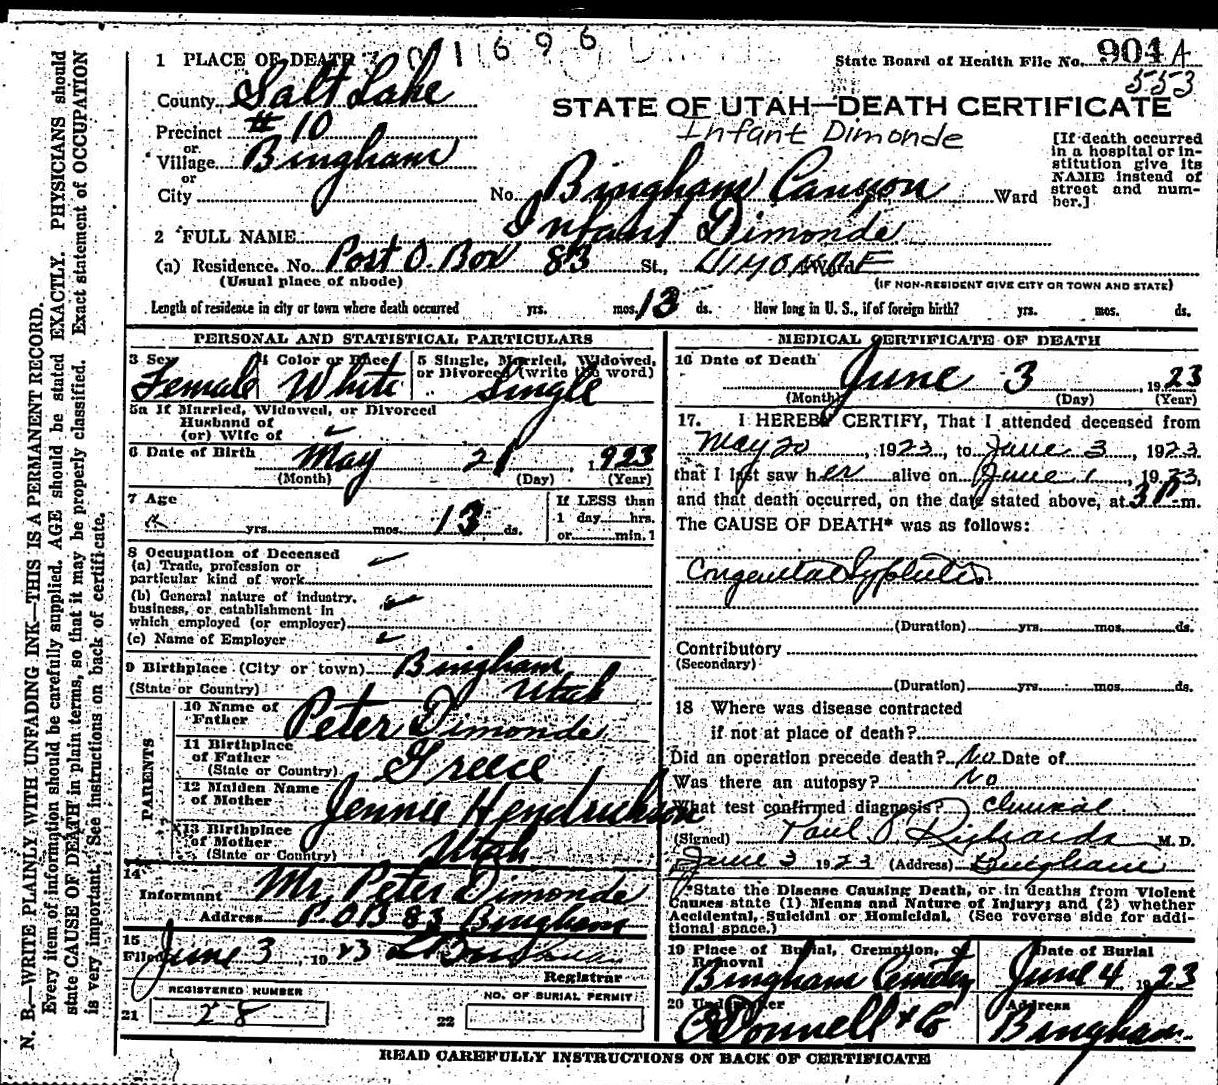 1 PLACE OF DEATH 701696
State Board of Health File No. 904 A
553
County Salt Lake
STATE OF UTAH—DEATH CERTIFICATE
Precinct # 10
Infant Dimonde
or
Village Bingham
or
City
No. Bingham Canyon Ward
[If death occurred
in a hospital or in-
stitution give its
NAME instead of
street and num-
ber.]
2 FULL NAME Infant Dimonde
(a) Residence. No. Post O. Box 83 St., Ward
DIMONDE
(Usual place of abode)
(IF NON-RESIDENT GIVE CITY OR TOWN AND STATE)
Length of residence in city or town where death occurred yrs. mos. 13 ds. How long in U. S., if of foreign birth? yrs. mos. ds.
PERSONAL AND STATISTICAL PARTICULARS
3 Sex
Female
4 Color or Race
White
5 Single, Married, Widowed,
or Divorced (write the word)
Single
5a If Married, Widowed, or Divorced
Husband of
(or) Wife of
6 Date of Birth May 21, 1923
(Month) (Day) (Year)
7 Age
yrs. mos. 13 ds.
If LESS than
1 day hrs.
or min. ?
8 Occupation of Deceased
(a) Trade, profession or
particular kind of work
(b) General nature of industry,
business, or establishment in
which employed (or employer)
(c) Name of Employer
9 Birthplace (City or town) Bingham
(State or Country) Utah
PARENTS
10 Name of
Father Peter Dimonde
11 Birthplace
of Father
(State or Country) Greece
12 Maiden Name
of Mother Jennie Hendrickson
13 Birthplace
of Mother
(State or Country) Utah
14
Informant Mr Peter Dimonde
Address P.O.B 83 Bingham
15
Filed June 3 1923
Registrar
REGISTERED NUMBER
21 28
NO. OF BURIAL PERMIT
22
MEDICAL CERTIFICATE OF DEATH
16 Date of Death June 3, 1923
(Month) (Day) (Year)
17. I HEREBY CERTIFY, That I attended deceased from
May 20, 1923, to June 3, 1923
that I last saw her alive on June 1, 1923,
and that death occurred, on the date stated above, at 3 P m.
The CAUSE OF DEATH* was as follows:
Congenital Syphilis
(Duration) yrs. mos. ds.
Contributory
(Secondary)
(Duration) yrs. mos. ds.
18 Where was disease contracted
if not at place of death?
Did an operation precede death? No Date of
Was there an autopsy? No
What test confirmed diagnosis? Clinical
(Signed) Paul S. Richards M. D.
June 3 1923 (Address) Bingham
*State the Disease Causing Death, or in deaths from Violent
Causes state (1) Means and Nature of Injury; and (2) whether
Accidental, Suicidal or Homicidal. (See reverse side for addi-
tional space.)
19 Place of Burial, Cremation, or
Removal
Bingham Cemetery
Date of Burial
June 4 1923
20 Undertaker
O'Donnell & Co
Address
Bingham
READ CAREFULLY INSTRUCTIONS ON BACK OF CERTIFICATE
N. B.—WRITE PLAINLY WITH UNFADING INK—THIS IS A PERMANENT RECORD.
Every item of information should be carefully supplied. AGE should be stated EXACTLY. PHYSICIANS should
state CAUSE OF DEATH in plain terms, so that it may be properly classified. Exact statement of OCCUPATION
is very important. See instructions on back of certificate.